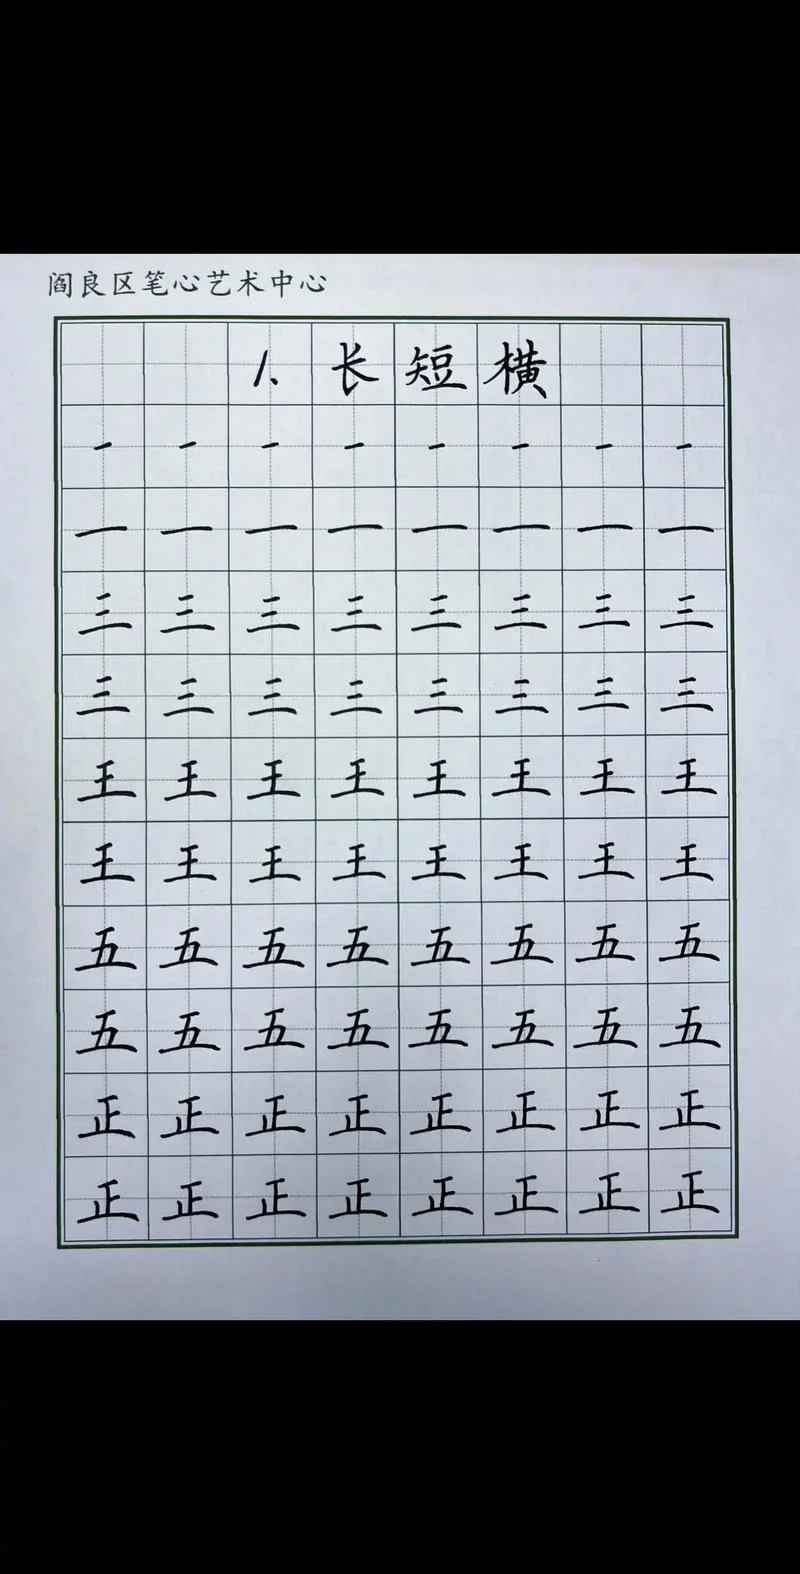 阎良区笔心艺术中心
1、长短横
一一一一一一一一
一一一一一一一一
三三三三三三三三
三三三三三三三三
王王王王王王王王
王王王王王王王王
五五五五五五五五
五五五五五五五五
正正正正正正正正
正正正正正正正正